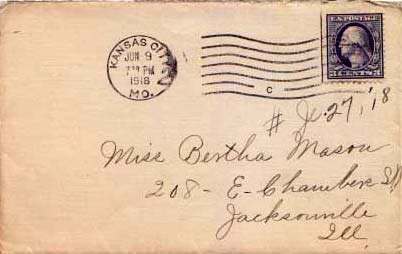 KANSAS CITY
JUN 9
7 30 PM
1918
MO.
C
U.S. POSTAGE
3 CENTS 3
# Je. 27, '18
Miss Bertha Mason
208 - E - Chambers St
Jacksonville
Ill